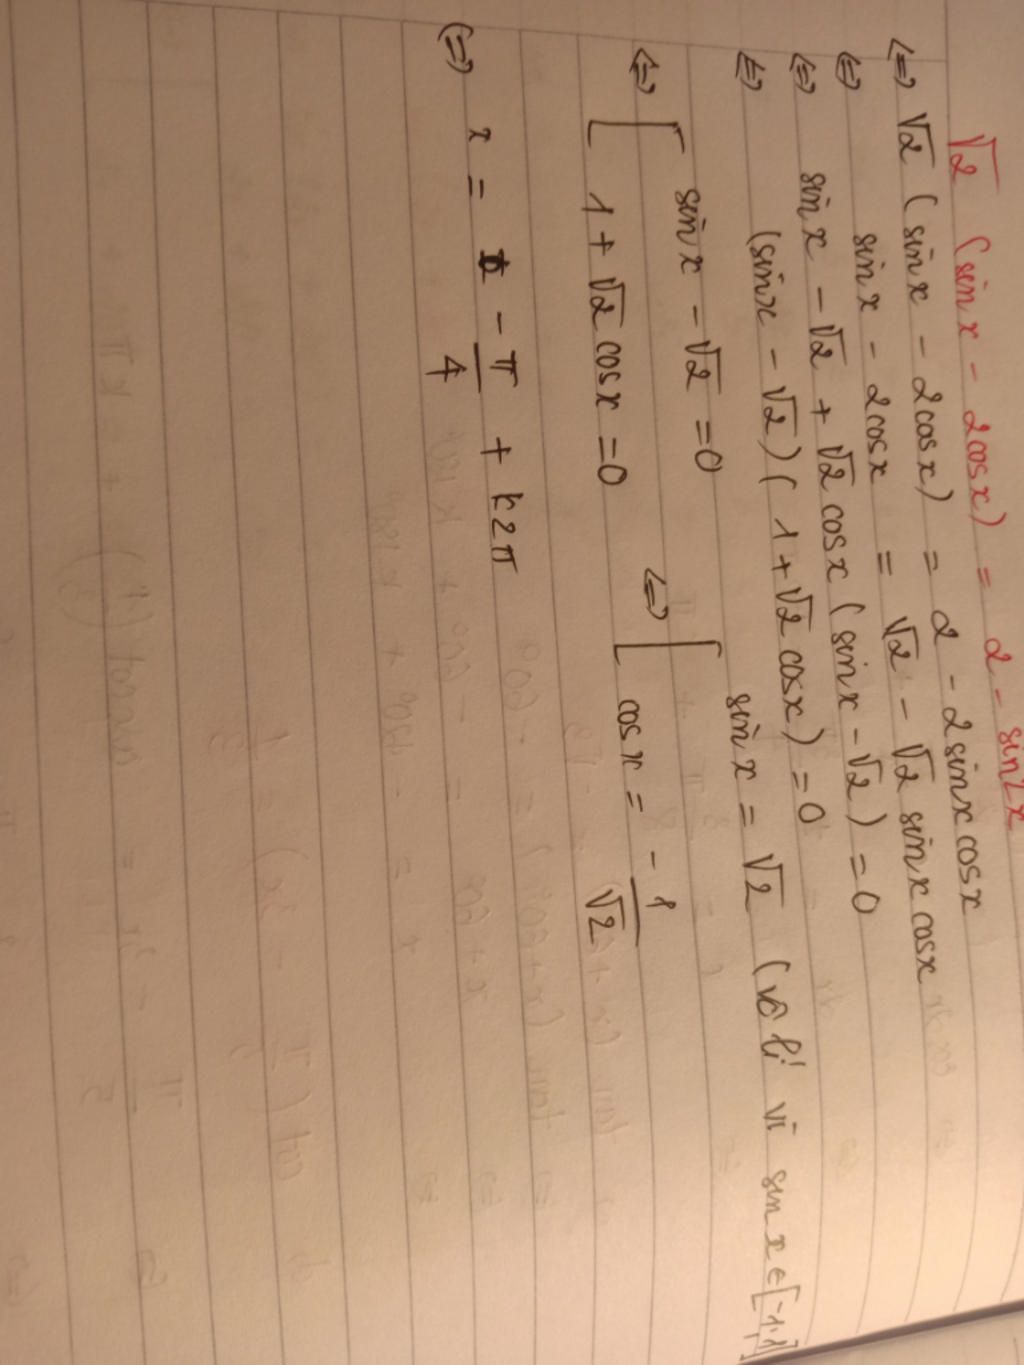 √2 (sin x - 2cos x) = 2 - sin2x
<=> √2 (sin x - 2cos x) = 2 - 2 sin x cos x
<=> sin x - 2cos x = √2 - √2 sin x cos x
<=> sin x - √2 + √2 cos x (sin x - √2) = 0
<=> (sin x - √2) (1 + √2 cos x) = 0
<=> [ sin x - √2 = 0 <=> [ sin x = √2 (vô lí vì sin x ∈ [-1;1]
1 + √2 cos x = 0 cos x = -1/√2
(=) x = -π/4 + k2π